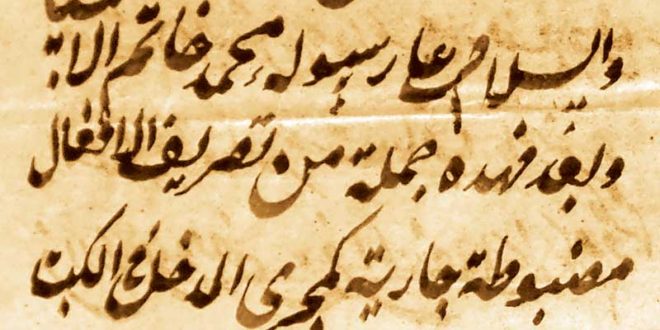 والسلام على رسوله محمد خاتم الانبيا
وبعد فهذه جملة من تصريف الافعال
مضبوطة جارية كمجرى المدخل الى الكتا